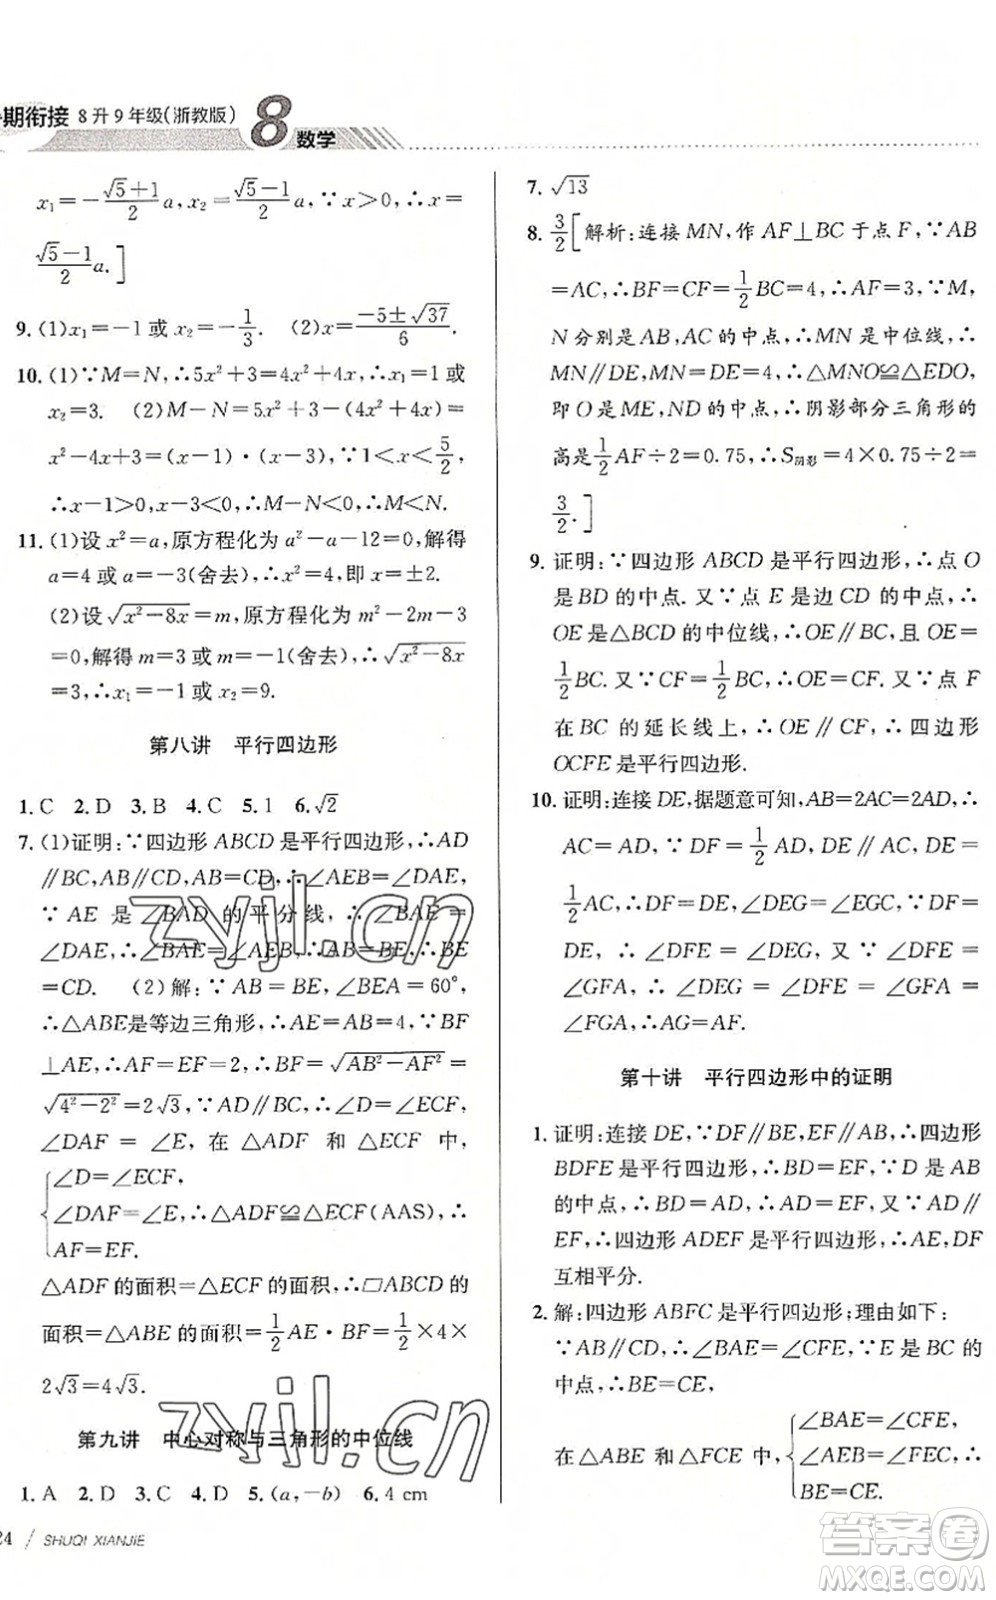 期衔接 8升9年级(浙教版) 8 数学
x₁=-(√5+1)/2 a, x₂=(√5-1)/2 a,∵x>0,∴x=
(√5-1)/2 a.]
9. (1)x₁=-1或x₂=-1/3. (2)x=(-5±√37)/6.
10. (1)∵M=N,∴5x²+3=4x²+4x,∴x₁=1或
x₂=3. (2)M-N=5x²+3-(4x²+4x)=
x²-4x+3=(x-1)·(x-3),∵1<x<5/2,
∴x-1>0,x-3<0,∴M-N<0,∴M<N.
11. (1)设x²=a,原方程化为a²-a-12=0,解得
a=4或a=-3(舍去),∴x²=4,即x=±2.
(2)设√(x²-8x)=m,原方程化为m²-2m-3
=0,解得m=3或m=-1(舍去),∴√(x²-8x)
=3,∴x₁=-1或x₂=9.
第八讲 平行四边形
1. C 2. D 3. B 4. C 5. 1 6. √2
7. (1)证明:∵四边形ABCD是平行四边形,∴AD
∥BC,AB∥CD,AB=CD,∴∠AEB=∠DAE,
∵AE是∠BAD的平分线,∴∠BAE=
∠DAE,∴∠BAE=∠AEB,∴AB=BE,∴BE
=CD. (2)解:∵AB=BE,∠BEA=60°,
∴△ABE是等边三角形,∴AE=AB=4,∵BF
⊥AE,∴AF=EF=2,∴BF=√(AB²-AF²)=
√(4²-2²)=2√3,∵AD∥BC,∴∠D=∠ECF,
∠DAF=∠E,在△ADF和△ECF中,
{∠D=∠ECF,
∠DAF=∠E,∴△ADF≌△ECF(AAS),∴
AF=EF.
△ADF的面积=△ECF的面积,∴▱ABCD的
面积=△ABE的面积=1/2 AE·BF=1/2×4×
2√3=4√3.
第九讲 中心对称与三角形的中位线
1. A 2. D 3. C 4. D 5. (a,-b) 6. 4 cm
24 / SHUQI XIANJIE
7. √13
8. 3/2[解析:连接MN,作AF⊥BC于点F,∵AB
=AC,∴BF=CF=1/2 BC=4,∴AF=3,∵M,
N分别是AB,AC的中点,∴MN是中位线,∴
MN∥DE,MN=DE=4,∴△MNO≌△EDO,
即O是ME,ND的中点,∴阴影部分三角形的
高是1/2 AF÷2=0.75,∴S阴影=4×0.75÷2=
3/2.]
9. 证明:∵四边形ABCD是平行四边形,∴点O
是BD的中点.又∵点E是边CD的中点,∴
OE是△BCD的中位线,∴OE∥BC,且OE=
1/2 BC.又∵CF=1/2 BC,∴OE=CF.又∵点F
在BC的延长线上,∴OE∥CF,∴四边形
OCFE是平行四边形.
10. 证明:连接DE,据题意可知,AB=2AC=2AD,∴
AC=AD,∵DF=1/2 AD,∵DE∥AC,DE=
1/2 AC,∴DF=DE,∠DEG=∠EGC,∵DF=
DE,∴∠DFE=∠DEG,又∵∠DFE=
∠GFA,∴∠DEG=∠DFE=∠GFA=
∠FGA,∴AG=AF.
第十讲 平行四边形中的证明
1. 证明:连接DE,∵DF∥BE,EF∥AB,∴四边形
BDFE是平行四边形,∴BD=EF,∵D是AB
的中点,∴BD=AD,∴AD=EF,又∵AD∥
EF,∴四边形ADEF是平行四边形,∴AE,DF
互相平分.
2. 解:四边形ABFC是平行四边形;理由如下:
∵AB∥CD,∴∠BAE=∠CFE,∵E是BC的
中点,∴BE=CE,
在△ABE和△FCE中,{∠BAE=∠CFE,
∠AEB=∠FEC,∴
BE=CE,
zyjl.cn
zyjl.cn
答案圈
MXQE.COM